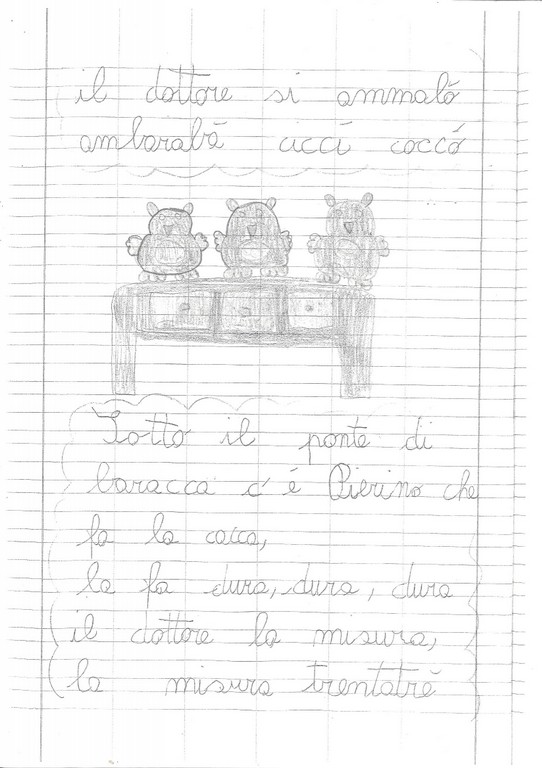 il dottore si ammalò
ambarabà ciccì coccò
Sotto il ponte di
baracca c'é Pierino che
fa la cacca,
la fa dura, dura, dura
il dottore la misura,
la misura trentatrè